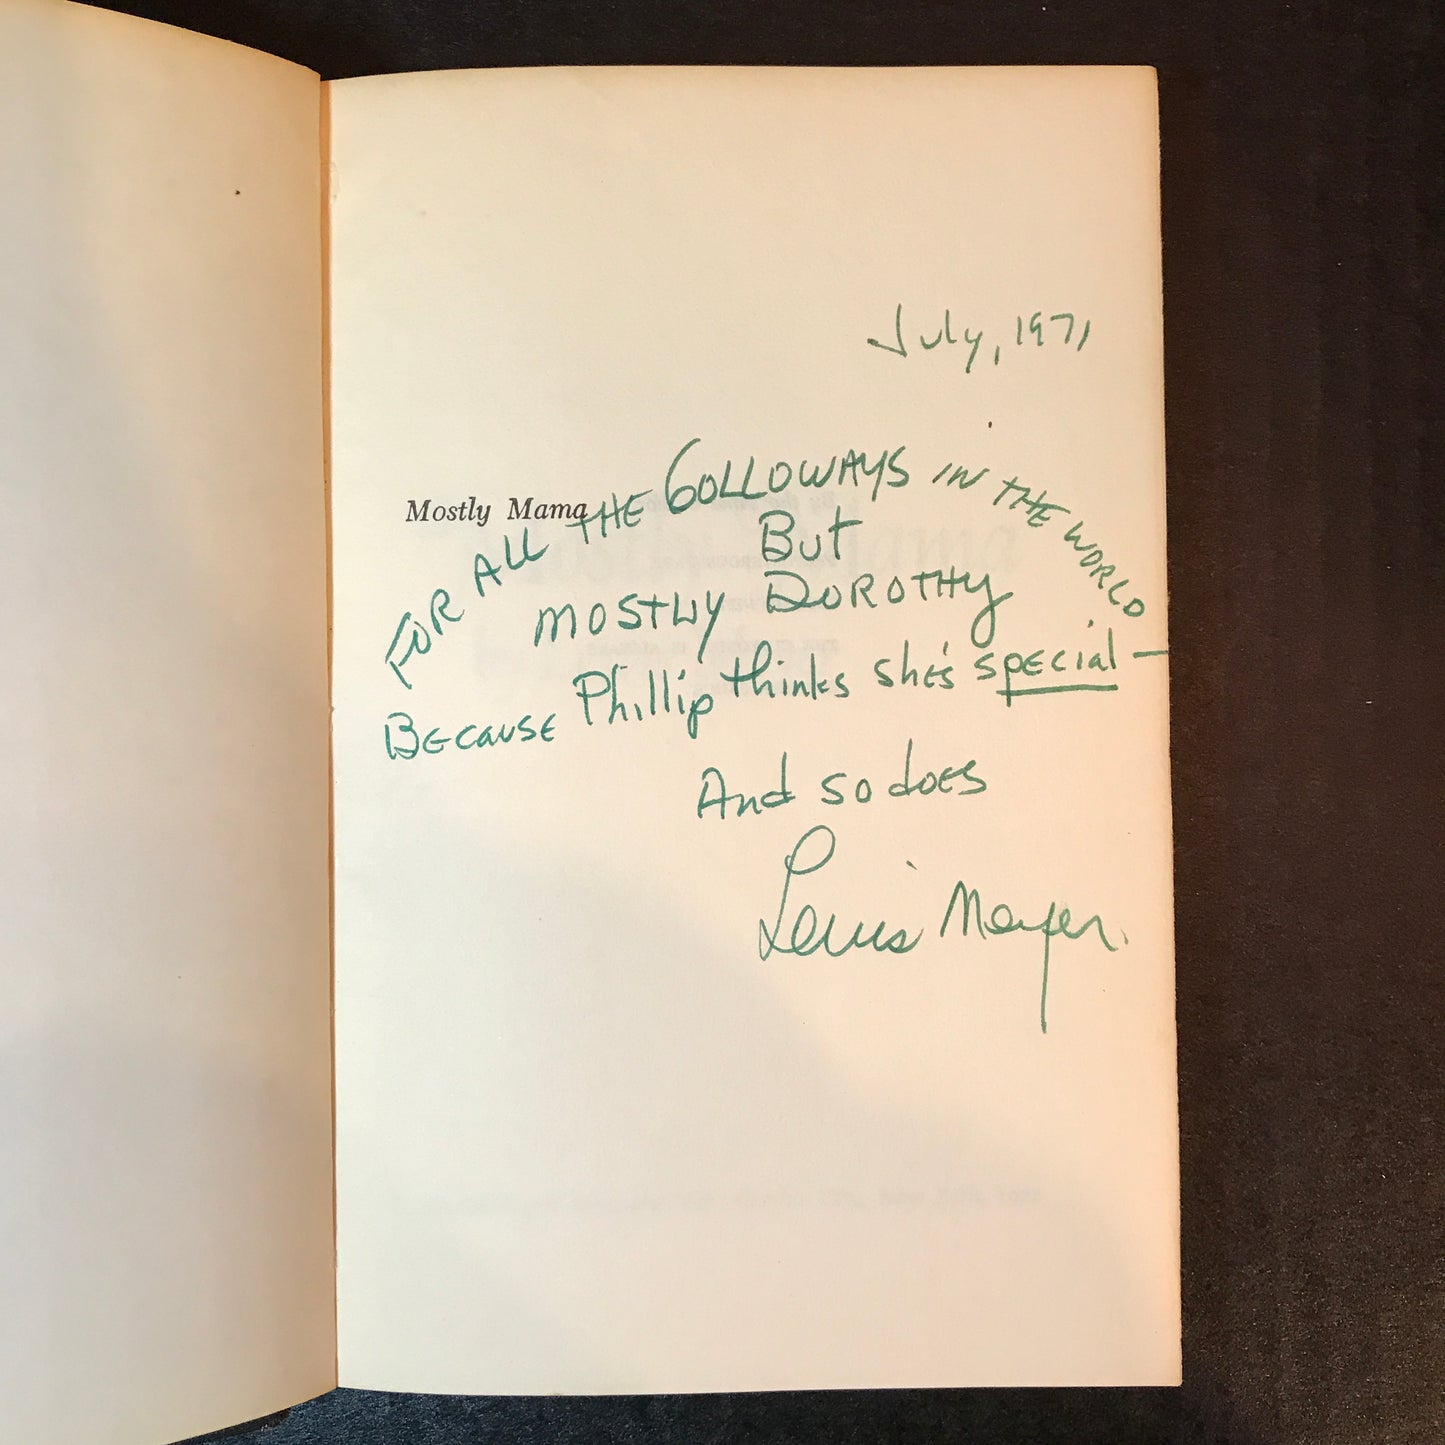 July, 1971
Mostly Mama
FOR ALL THE GOLLOWAYS IN THE WORLD
But
MOSTLY DOROTHY
BECAUSE Phillip thinks she's special —
And so does
Lewis Meyer.